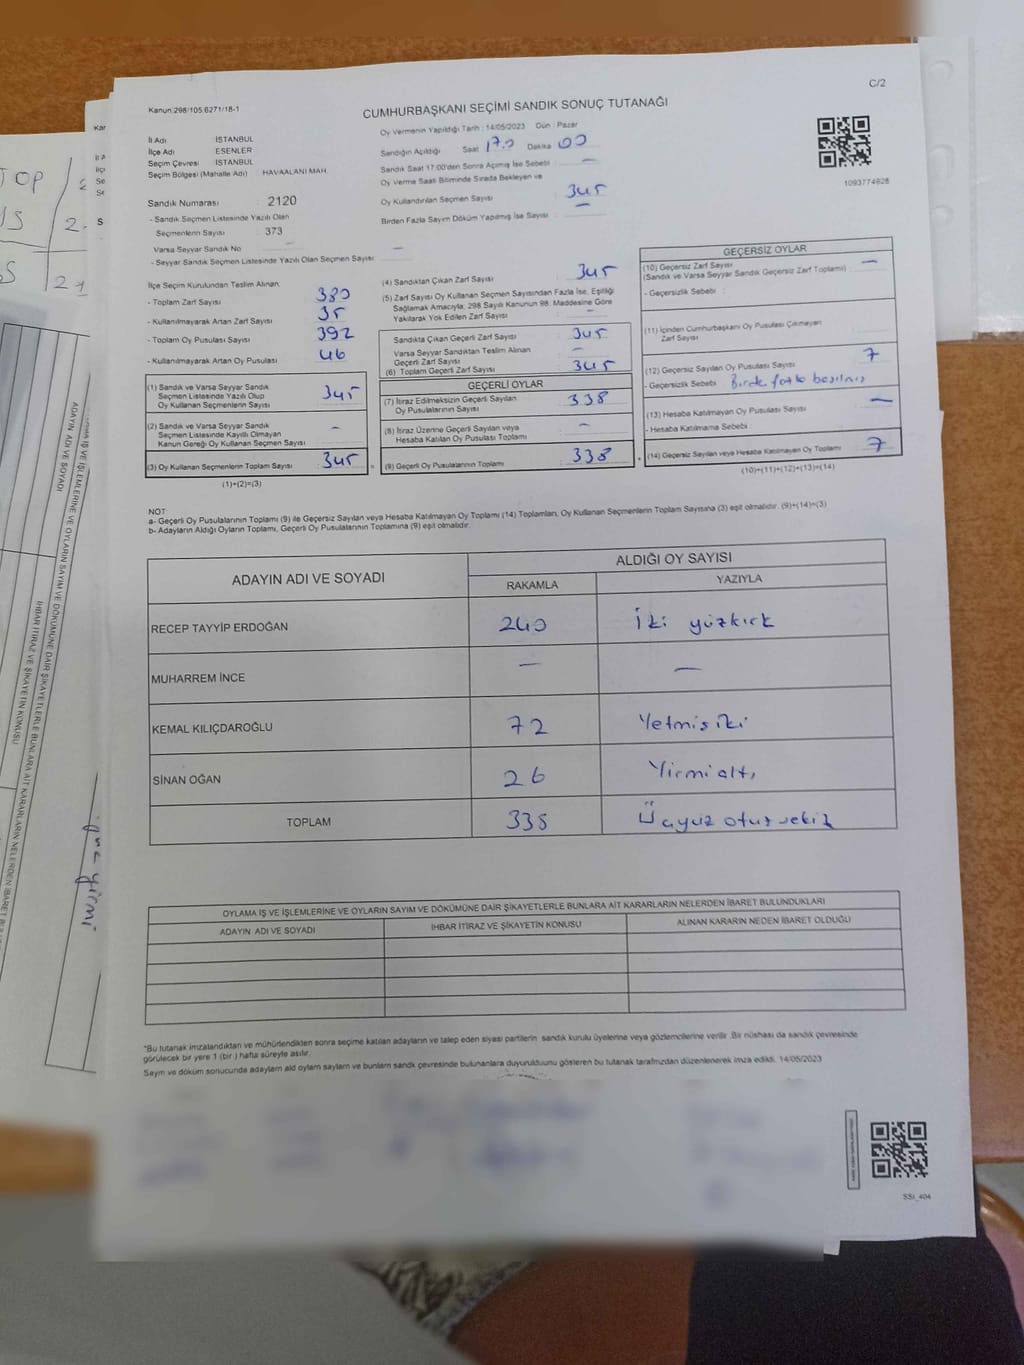 C/2
Kanun:298/105 6271/18-1
CUMHURBAŞKANI SEÇİMİ SANDIK SONUÇ TUTANAĞI
İl Adı İSTANBUL
İlçe Adı ESENLER
Seçim Çevresi İSTANBUL
Seçim Bölgesi (Mahalle Adı) : HAVAALANI MAH.
Sandık Numarası : 2120
- Sandık Seçmen Listesinde Yazılı Olan
Seçmenlerin Sayısı : 373
Varsa Seyyar Sandık No –
- Seyyar Sandık Seçmen Listesinde Yazılı Olan Seçmen Sayısı: –
Oy Vermenin Yapıldığı Tarih : 14/05/2023 Gün : Pazar
Sandığın Açıldığı Saat 17.0 Dakika 00
Sandık Saat 17:00'den Sonra Açılmış İse Sebebi : –
Oy Verme Saati Bitiminde Sırada Bekleyen ve
Oy Kullandırılan Seçmen Sayısı : 345
Birden Fazla Sayım Döküm Yapılmış İse Sayısı : –
1093774628
İlçe Seçim Kurulundan Teslim Alınan;
- Toplam Zarf Sayısı : 380
- Kullanılmayarak Artan Zarf Sayısı : 35
- Toplam Oy Pusulası Sayısı : 392
- Kullanılmayarak Artan Oy Pusulası : 46
(1) Sandık ve Varsa Seyyar Sandık
Seçmen Listesinde Yazılı Olup
Oy Kullanan Seçmenlerin Sayısı : 345
(2) Sandık ve Varsa Seyyar Sandık
Seçmen Listesinde Kayıtlı Olmayan
Kanun Gereği Oy Kullanan Seçmen Sayısı : –
(3) Oy Kullanan Seçmenlerin Toplam Sayısı : 345
(1)+(2)=(3)
(4) Sandıktan Çıkan Zarf Sayısı : 345
(5) Zarf Sayısı Oy Kullanan Seçmen Sayısından Fazla İse, Eşitliği
Sağlamak Amacıyla, 298 Sayılı Kanunun 98. Maddesine Göre
Yakılarak Yok Edilen Zarf Sayısı : –
Sandıkta Çıkan Geçerli Zarf Sayısı : 345
Varsa Seyyar Sandıktan Teslim Alınan
Geçerli Zarf Sayısı : –
(6) Toplam Geçerli Zarf Sayısı : 345
GEÇERLİ OYLAR
(7) İtiraz Edilmeksizin Geçerli Sayılan
Oy Pusulalarının Sayısı : 338
(8) İtiraz Üzerine Geçerli Sayılan veya
Hesaba Katılan Oy Pusulası Toplamı : –
(9) Geçerli Oy Pusulalarının Toplamı : 338
GEÇERSİZ OYLAR
(10) Geçersiz Zarf Sayısı
(Sandık ve Varsa Seyyar Sandık Geçersiz Zarf Toplamı) : –
- Geçersizlik Sebebi :
(11) İçinden Cumhurbaşkanı Oy Pusulası Çıkmayan
Zarf Sayısı :
(12) Geçersiz Sayılan Oy Pusulası Sayısı : 7
- Geçersizlik Sebebi : Birde fazla basılmış
(13) Hesaba Katılmayan Oy Pusulası Sayısı : –
- Hesaba Katılmama Sebebi :
(14) Geçersiz Sayılan veya Hesaba Katılmayan Oy Toplamı : 7
(10)+(11)+(12)+(13)=(14)
NOT:
a- Geçerli Oy Pusulalarının Toplamı (9) ile Geçersiz Sayılan veya Hesaba Katılmayan Oy Toplamı (14) Toplamları, Oy Kullanan Seçmenlerin Toplam Sayısına (3) eşit olmalıdır. (9)+(14)=(3)
b- Adayların Aldığı Oyların Toplamı, Geçerli Oy Pusulalarının Toplamına (9) eşit olmalıdır.
ADAYIN ADI VE SOYADI
ALDIĞI OY SAYISI
RAKAMLA YAZIYLA
RECEP TAYYİP ERDOĞAN 240 İki yüzkırk
MUHARREM İNCE – –
KEMAL KILIÇDAROĞLU 72 Yetmişiki
SİNAN OĞAN 26 Yirmialtı
TOPLAM 338 Üçyüz otuzsekiz
OYLAMA İŞ VE İŞLEMLERİNE VE OYLARIN SAYIM VE DÖKÜMÜNE DAİR ŞİKAYETLERLE BUNLARA AİT KARARLARIN NELERDEN İBARET BULUNDUKLARI
ADAYIN ADI VE SOYADI İHBAR İTİRAZ VE ŞİKAYETİN KONUSU ALINAN KARARIN NEDEN İBARET OLDUĞU
*Bu tutanak imzalandıktan ve mühürlendikten sonra seçime katılan adayların ve talep eden siyasi partilerin sandık kurulu üyelerine veya gözlemcilerine verilir. Bir nüshası da sandık çevresinde
görülecek bir yere 1 (bir) hafta süreyle asılır.
Sayım ve döküm sonucunda adayların aldı oyların sayıların ve bunların sandık çevresinde bulunanlara duyurulduunu gösteren bu tutanak tarafımızdan düzenlenerek imza edildi. 14/05/2023
SSİ_404
TOP
ADAYIN ADI VE SOYADI
İHBAR İTİRAZ VE ŞİKAYETİN KONUSU
yirmi